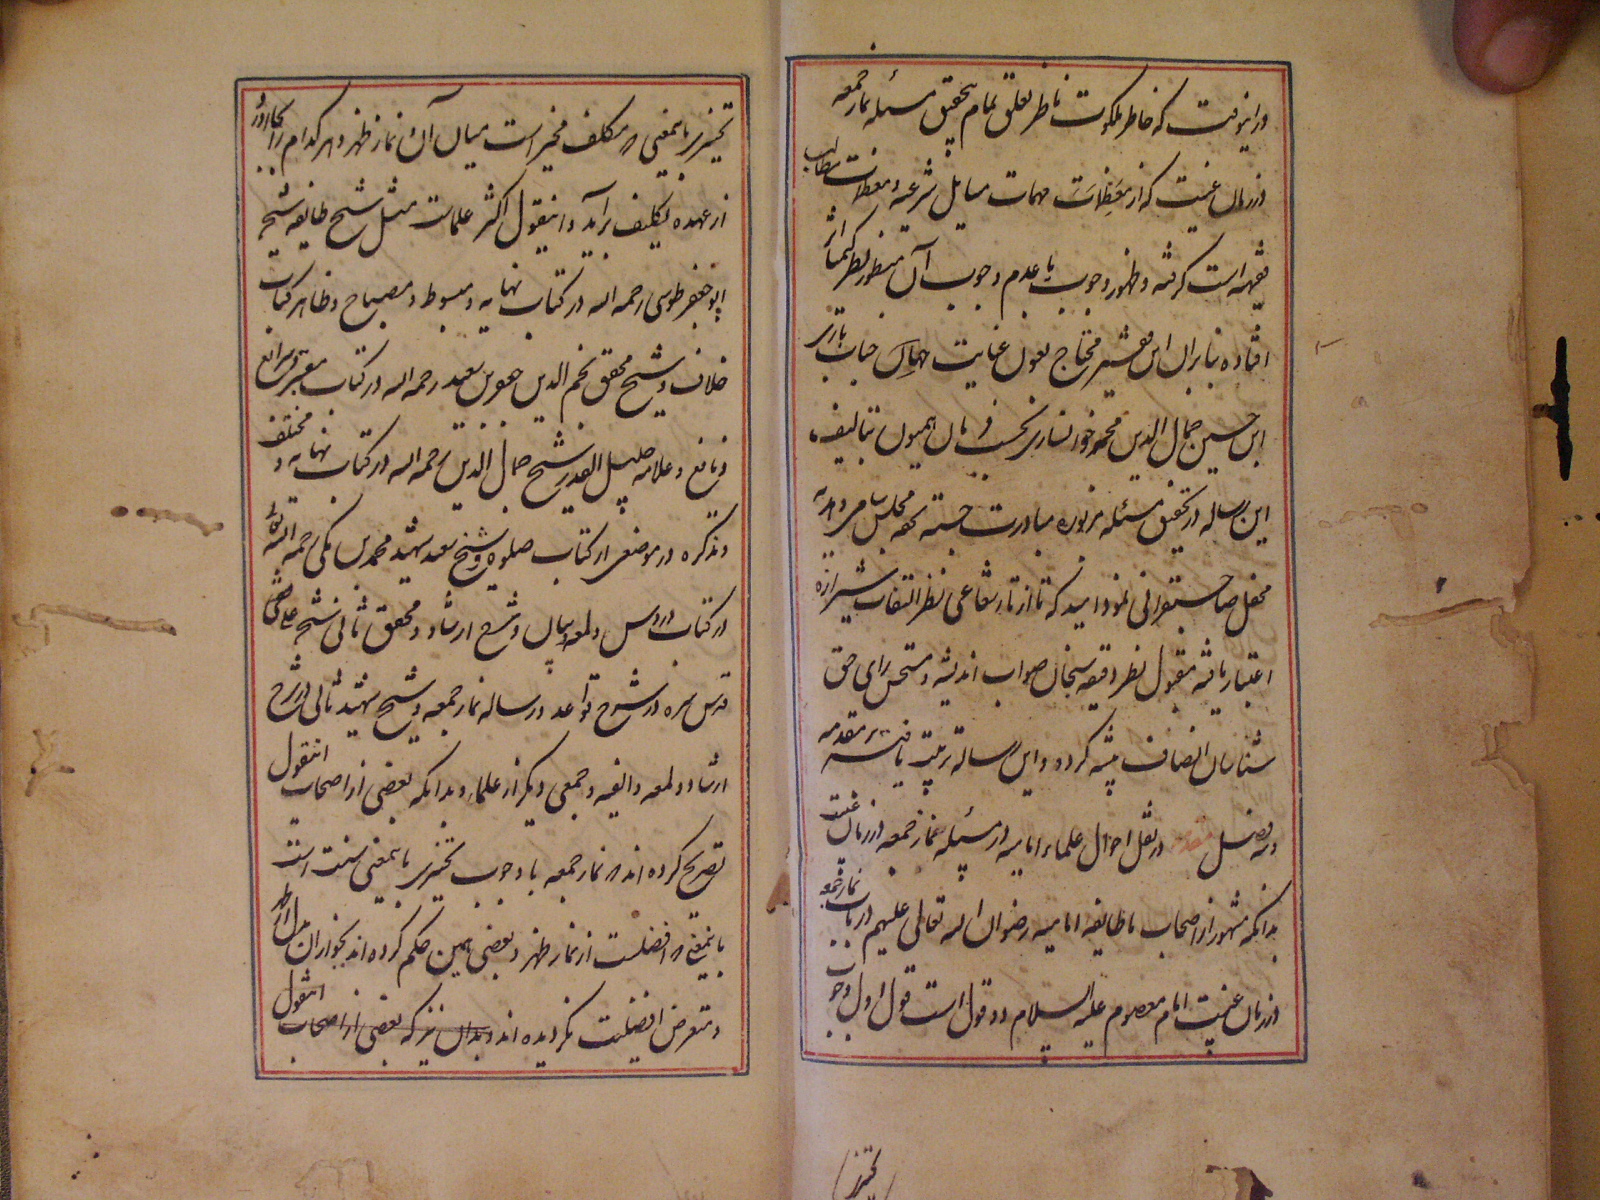 درینوقت که خاطر ملکوت ناظر تعلق تمام بتحقیق مسئله نماز جمعه
در زمان غیبت که از معظمات مهمات مسایل شرعیه و معضلات مطالب
فقهیه است گرفته و ظهور وجوب یا عدم وجوب آن منظور نظر کیمیا اثر
افتاده بنابران این فقیر محتاج بعون عنایت جناب باری
ابن حسین جمال الدین محمد خوانساری بحسب فرمان همیون بتالیف
این رساله در تحقیق مسئله مزبوره مبادرت جسته تحفه مجلس سامی و هدیه
محفل صاحبقرانی نمود امید که تا از تار شعاعی نظر التفات شیرازه
اعتبار یافته مقبول نظر دقیقه سنجان صواب اندیشه و مستحسن رای حق
شناسان انصاف پیشه گردد و این رساله ترتیب یافته بر مقدمه
و سه فصل مقدمه در نقل اقوال علماء امامیه در مسئله نماز جمعه در زمان غیبت
بدانکه مشهور از اصحاب ما طایفه امامیه رضوان الله تعالی علیهم در باب نماز جمعه
در زمان غیبت امام معصوم علیه السلام دو قول است قول اول وجوب
تخییر
تخییری باینمعنی که مکلف مخیر است میان آن و نماز ظهر و هر کدام را بجا آورد
از عهده تکلیف برآید و اینقول اکثر علماست مثل شیخ طایفه شیخ
ابو جعفر طوسی رحمه الله در کتاب نهایه و مبسوط و مصباح و ظاهر کتاب
خلاف و شیخ محقق نجم الدین جعفر بن سعید رحمه الله در کتاب معتبر و شرایع
و نافع و علامه جلیل القدر شیخ جمال الدین رحمه الله در کتاب نهایه و مختلف
و تذکره در موضعی از کتاب صلوة و شیخ سعید شهید محمد بن مکی رحمه الله
در کتاب دروس و لمعه و بیان و شرح ارشاد و محقق ثانی شیخ علی
قدس سره در شرح قواعد و رساله نماز جمعه و شیخ شهید ثانی در شرح
ارشاد و لمعه و الفیه و جمعی دیگر از علماء و بدانکه بعضی از اصحاب اینقول
تصریح کرده اند که نماز جمعه با وجوب تخییری باینمعنی سنت است
باینمعنی که افضلست از نماز ظهر و بعضی همین حکم کرده اند بجواز آن بدل از ظهر
و متعرض افضلیت نگردیده اند و بدان نیز که بعضی از اصحاب اینقول